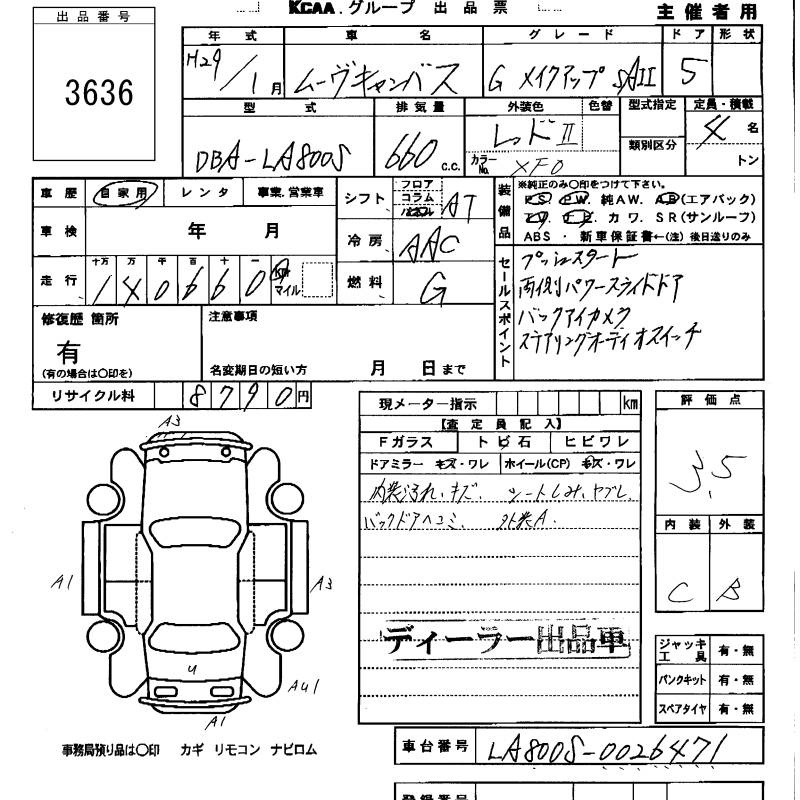 KCAA.グループ 出品票
主催者用
出品番号
3636
年式 車名 グレード ドア 形状
H29/1月 ムーヴキャンバス G メイクアップ SAII 5
型式 排気量 外装色 色替 型式指定 定員・積載
DBA-LA800S 660 c.c. レッドII 類別区分 4名
カラーNo. XF0 トン
車歴 自家用 レンタ 事業.営業車
シフト フロア コラム AT
装備品 ※純正のみ○印をつけて下さい。
PS PW 純AW. AB(エアバック)
カワ. SR(サンルーフ)
ABS ・ 新車保証書←(注) 後日送りのみ
車検 年 月
冷房 AAC
走行 十万 万 千 百 十 一
140660 Km マイル
燃料 G
セールスポイント
プッシュスタート
両側パワースライドドア
バックアイカメラ
ステアリングオーディオスイッチ
修復歴 箇所
有
(有の場合は○印を)
注意事項
名変期日の短い方 月 日まで
リサイクル料 8790円
現メーター指示 km
【査定員記入】
Fガラス トビ石 ヒビワレ
ドアミラー キズ・ワレ ホイール(CP) キズ・ワレ
内装汚れ、キズ、 シートしみ、ヤブレ、
バックドアヘコミ、 外装A.
ディーラー出品車
評価点
3.5
内装 外装
C B
A3
A1
A3
U
AU1
A1
ジャッキ工具 有・無
パンクキット 有・無
スペアタイヤ 有・無
事務局預り品は○印 カギ リモコン ナビロム
車台番号 LA800S-0026471
登録番号